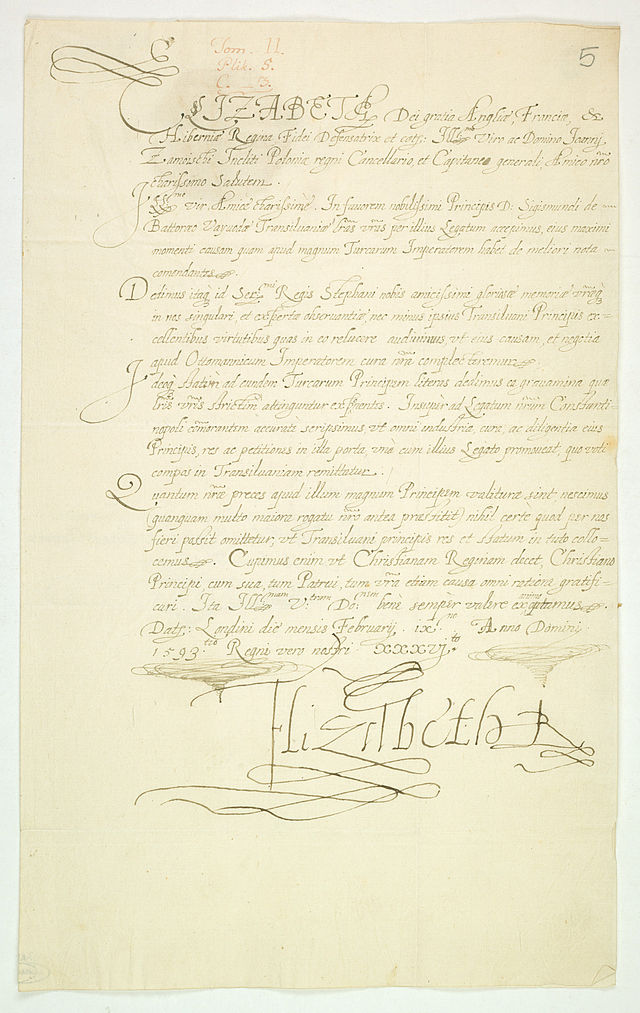 Tom. II.
Plik. 5.
C. 3.
5
ELIZABETH Dei gratia Angliæ, Franciæ, &
Hiberniæ Regina Fidei Defensatrix et cæt: Ill^mo Viro ac Domino Joanni
Zamoischi Incliti Poloniæ regni Cancellario, et Capitaneo generali, Amico nr̃o
charissimo Salutem.
Ill^me vir Amice charissime. In favorem nobilissimi Principis D: Sigismundi de
Battorao Vayuodæ Transiluaniæ l̃ras vr̃as per illius Legatum accepimus, eius maximi
momenti causam quam apud magnum Turcarum Imperatorem habet de meliori nota
comendantes.
Dedimus itaq̃ id Ser^mi Regis Stephani nobis amicissimi gloriosæ memoriæ vr̃æq̃
in nos singulari et expertæ observantiæ, nec minus ipsius Transiluani Principis ex-
cellentibus virtutibus quas in eo relucere audiuimus, vt eius causam, et negotia
apud Ottomannicum Imperatorem cura nr̃a complecteremur.
Ideoq̃ statim ad eundem Turcarum Principem literas dedimus ea grauamina quæ
l̃ris vr̃is strictim attinguntur exponentes. Insuper ad Legatum nr̃um Constanti-
nopoli com̃orantem accurate scripsimus, vt omni industria, cura, ac diligentia eius
Principis, res ac petitiones in illa porta, vnà cum illius Legato promoueat, quo voti
compos in Transiluaniam remittatur.
Quantum nr̃æ preces apud illum magnum Principem valituræ sint, nescimus
(quanquam multo maiora rogatu nr̃o antea præstitit) nihil certe quod per nos
fieri possit omittetur, vt Transiluani principis res et statum in tuto collo-
cemus. Cupimus enim vt Christianam Reginam decet, Christiano
Principi cum sua, tum Patrui, tum vr̃a etiam causa omni ratione gratifi-
cari. Ita Ill^mam V:^tram Do:^nem benè semper valere exoptamus.
Dat: Londini die mensis Februarij. ix^no. Anno Domini
1593^tio Regni vero nostri xxxvj^to
Elizabeth R